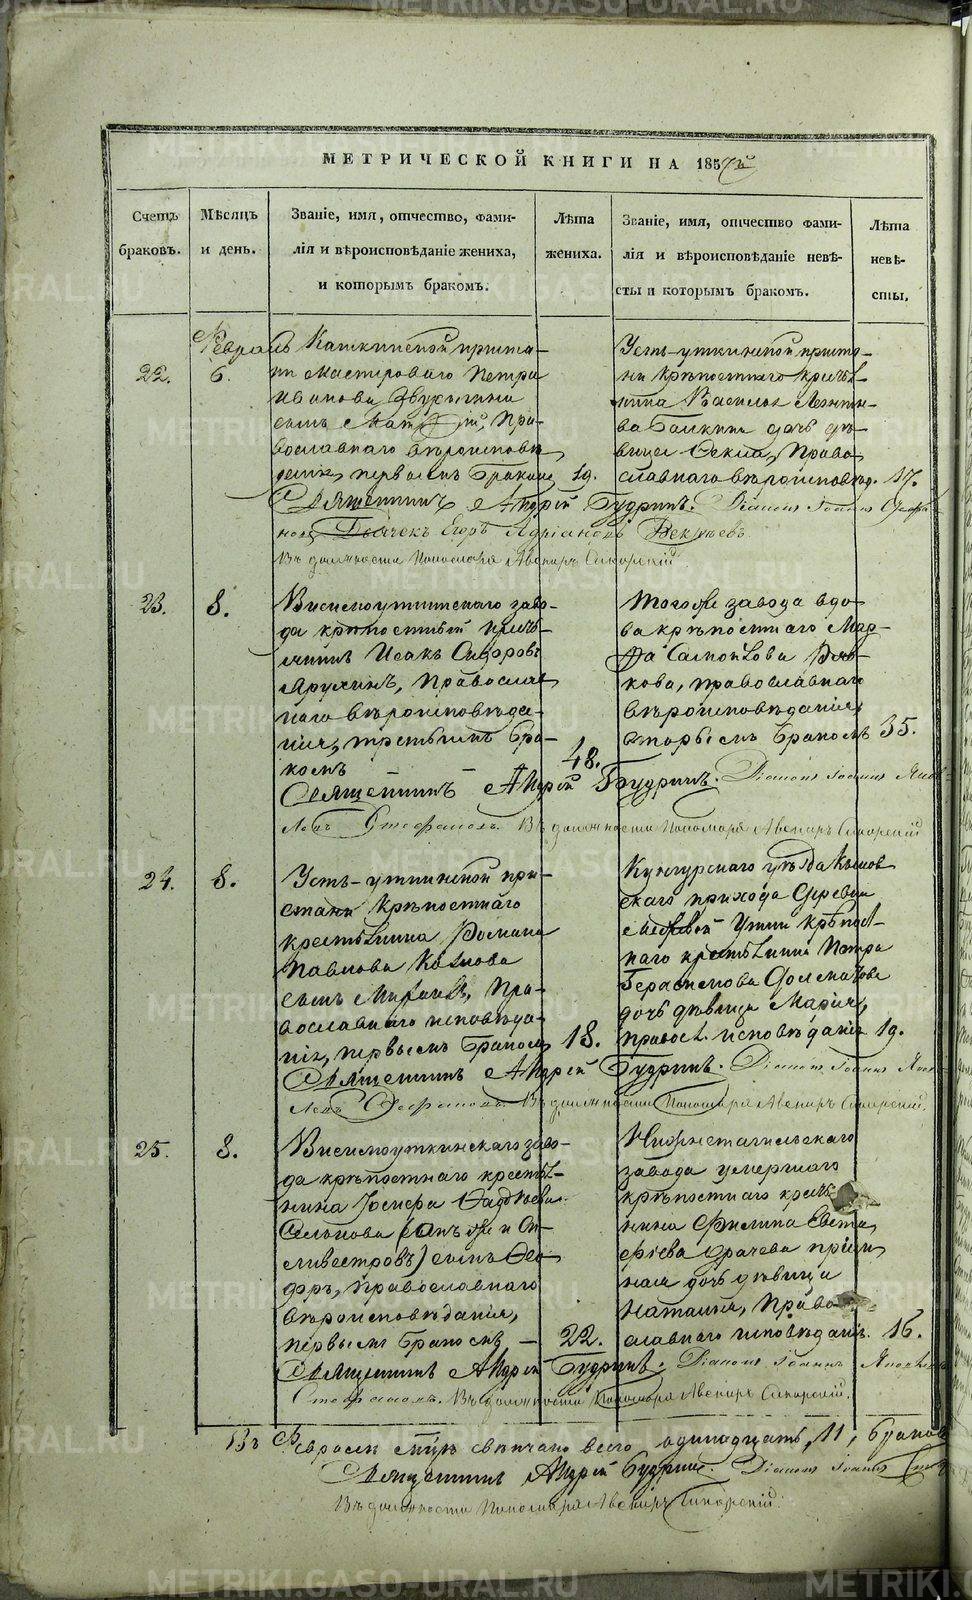 МЕТРИЧЕСКОЙ КНИГИ НА 185
Счетъ браковъ.
Мѣсяцъ и день.
Званіе, имя, отчество, фами-
лія и вѣроисповѣданіе жениха,
и которымъ бракомъ.
Лѣта жениха.
Званіе, имя, отчество фами-
лія и вѣроисповѣданіе невѣ-
сты и которымъ бракомъ.
Лѣта невѣ-
сты.
22.
Февраль
6.
Кашкинской приста-
ни мастероваго Петра
Иванова
сынъ Матѳій, Пра-
вославнаго вѣроисповѣ
денія, первымъ бракомъ
19.
Усть-уткинской приста-
ни крѣпостнаго крестья-
нина Василья Леонть-
ва Галкина дочь дѣ-
вица Ѳекла, Право
славнаго вѣроисповѣд.
17.
Священникъ Андрей Будринъ. Діаконъ Іоаннъ
Дьячекъ Егоръ Адріановъ
Въ должности Пономаря Авениръ Сикорскій
23.
8.
Висимоуткинскаго заво-
да крѣпостный крестья-
нинъ Исакъ Сидоровъ
Ярухинъ, Православ
наго вѣроисповѣда-
нія, третьимъ бра-
комъ
48.
Тогоже завода вдо-
ва крѣпостнаго Мар-
фа Самойлова
кова, православнаго
вѣроисповѣданія,
вторымъ бракомъ
35.
Священникъ Андрей Будринъ. Діаконъ Іоаннъ Яков
левъ Стефановъ. Въ должности Пономаря Авениръ Сикорскій
24.
8.
Усть-уткинской при-
стани крѣпостнаго
крестьянина Романа
Павлова Козлова
сынъ Михаилъ, Пра-
вославнаго исповѣда-
нія, первымъ бракомъ
18.
Кунгурскаго уѣзда
скаго прихода деревни
Межевой Утки крѣпост-
наго крестьянина Петра
Герасимова Долматова
дочь дѣвица Марія,
правосл. исповѣданія
19.
Священникъ Андрей Будринъ. Діаконъ Іоаннъ Яков
левъ Стефановъ. Въ должности Пономаря Авениръ Сикорскій.
25.
8.
Висимоуткинскаго заво-
да крѣпостнаго крестья-
нина Іосифа Ѳадѣева
(онъ же и Си-
ливестровъ) сынъ Ѳео-
доръ, православнаго
вѣроисповѣданія,
первымъ бракомъ —
22.
Нижнетагильскаго
завода умершаго
крѣпостнаго крестья
нина Филипа Евста
фіева Драчева
ная дочь дѣвица
Наталія, Право
славнаго исповѣдан.
16.
Священникъ Андрей Будринъ. Діаконъ Іоаннъ Яковлевъ
Стефановъ. Въ должности Пономаря Авениръ Сикорскій.
Въ Февралѣ мцѣ свѣнчано всего одинадцать, 11, браков
Священникъ Андрей Будринъ. Діаконъ Іоаннъ
Въ должности Пономаря Авениръ Сикорскій.
METRIKI.GASO-URAL.RU